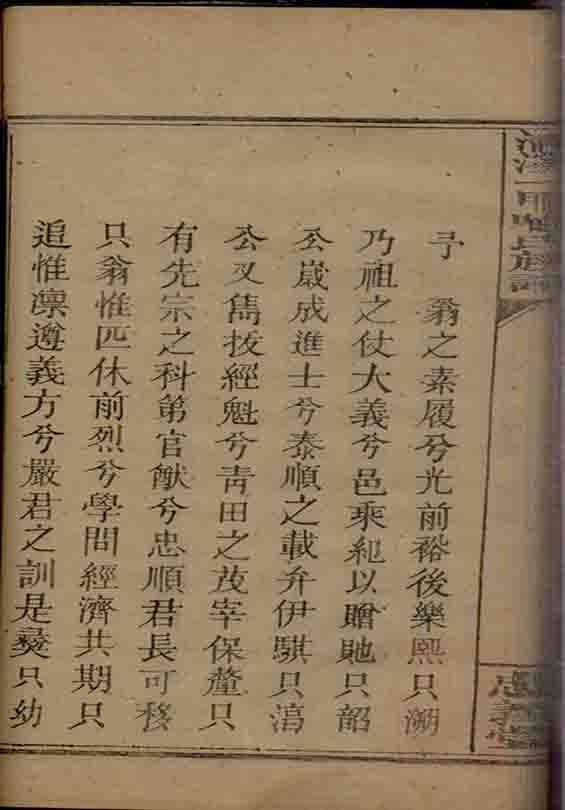 予　翁之素履兮光前裕後樂熙只溯
乃祖之仗大義兮邑乘紀以贈貤只韶
公歲成進士兮泰順之載弁伊騏只漓
公又雋拔經魁兮青田之茂宰保釐只
有先宗之科第官猷兮忠順君長可移
只翁惟匹休前烈兮學問經濟共期只
追惟凛遵義方兮嚴君之訓是彝只幼
忠義堂